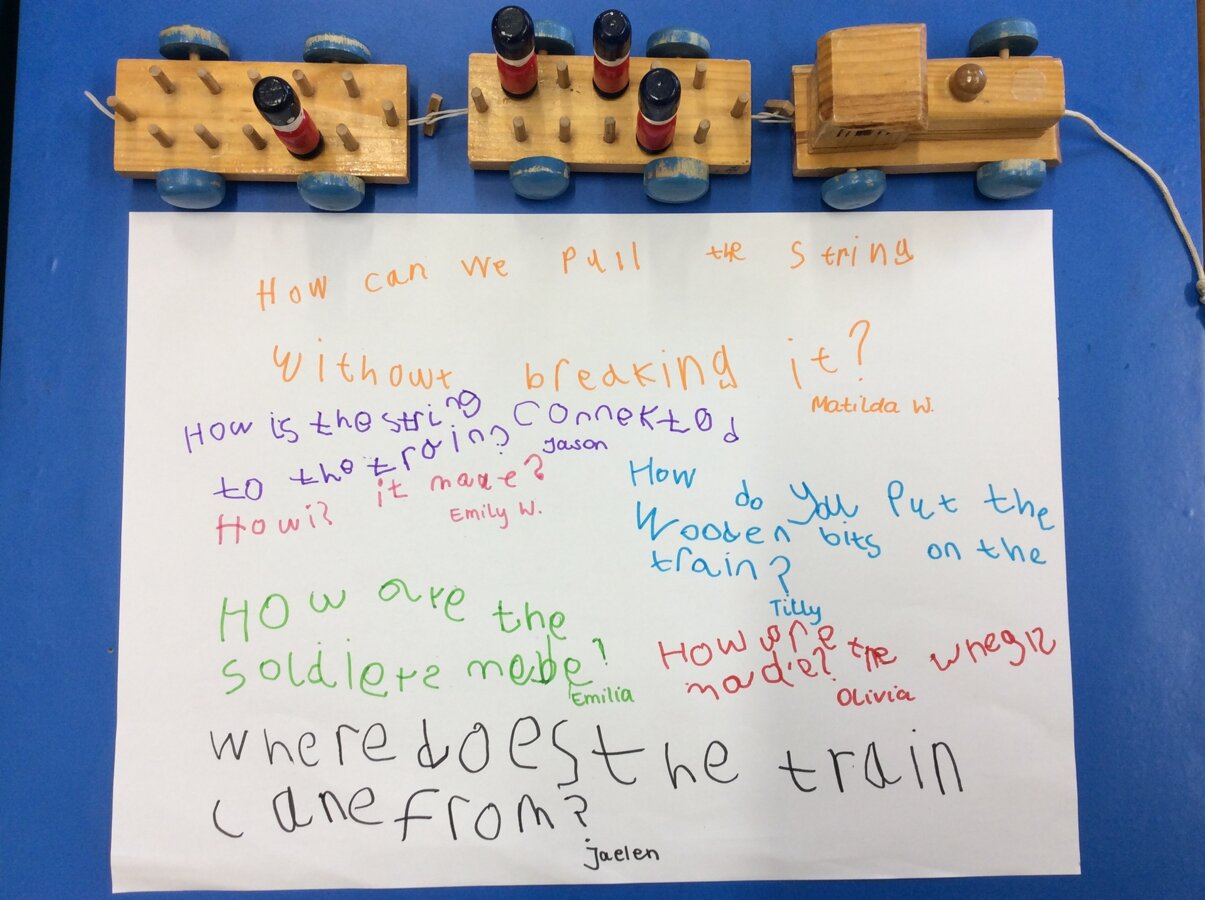 How can we pull the string
without breaking it?
Matilda W.
How is the string connekted
to the train?
Jason
How i? it made?
Emily W.
How do you put the
wooden bits on the
train?
Tilly
How are the
soldiers made?
Emilia
How are the
made?
Olivia
where does the train
cane from?
jaelen